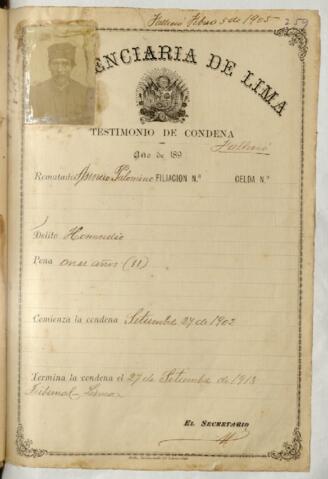 Falleció Febro 5 de 1905 259
ENCIARIA DE LIMA
TESTIMONIO DE CONDENA
Año de 189
Falleció
Rematado Palomino FILIACION N.º CELDA N.º
Delito Homicidio
Pena once años (11)
Comienza la condena Setiembre 27 de 1902
Termina la condena el 27 de Setiembre de 1913
Tribunal Lima
EL SECRETARIO